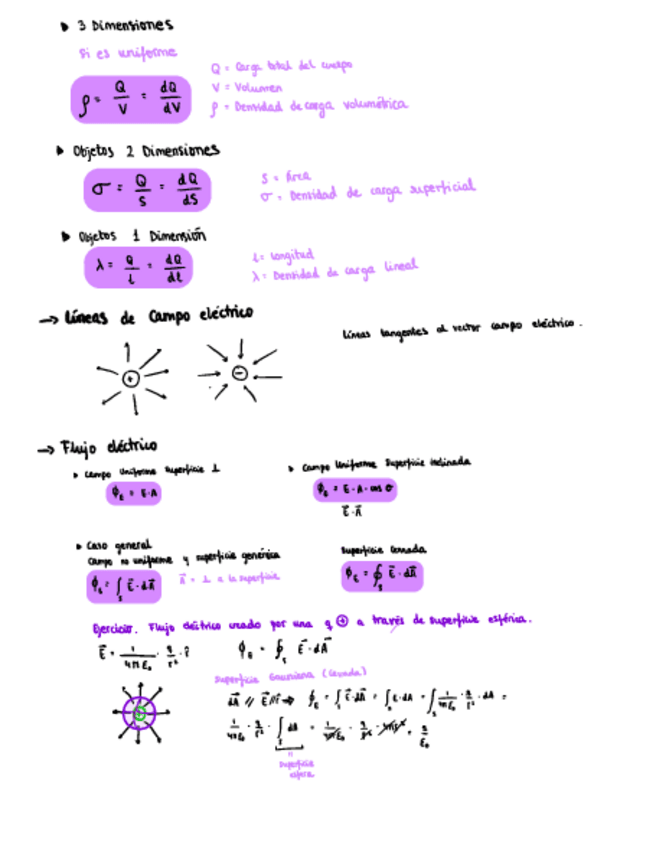 ▶ 3 Dimensiones
Si es uniforme
ρ = Q/V = dQ/dV
Q = Carga total del cuerpo
V = Volumen
ρ = Densidad de carga volumétrica
▶ Objetos 2 Dimensiones
σ = Q/S = dQ/dS
S = Área
σ = Densidad de carga superficial
▶ Objetos 1 Dimensión
λ = Q/l = dQ/dl
l = Longitud
λ = Densidad de carga lineal
→ Líneas de Campo eléctrico
Líneas tangentes al vector campo eléctrico.
+ −
→ Flujo eléctrico
▶ Campo Uniforme Superficie ⊥
ϕE = E·A
▶ Campo Uniforme Superficie inclinada
ϕE = E·A·cos σ
E⃗·A⃗
▶ Caso general
Campo no uniforme y superficie genérica
ϕE = ∫S E⃗·dA⃗
A⃗ = ⊥ a la superficie
Superficie Cerrada
ϕE = ∮S E⃗·dA⃗
Ejercicio. Flujo eléctrico creado por una q ⊕ a través de superficie esférica.
E⃗ = 1/4πE₀ · q/r² · r̂
ϕE = ∮S E⃗·dA⃗
Superficie Gaussiana (Cerrada)
dA⃗ // E⃗//r⃗ ⇒ ϕE = ∫S E⃗·dA⃗ = ∫S E·dA = ∫S 1/4πE₀ · q/r² · dA =
1/4πE₀ · q/r² · ∫S dA = 1/4πE₀ · q/r² · 4πr² = q/E₀
"
Superficie
esfera